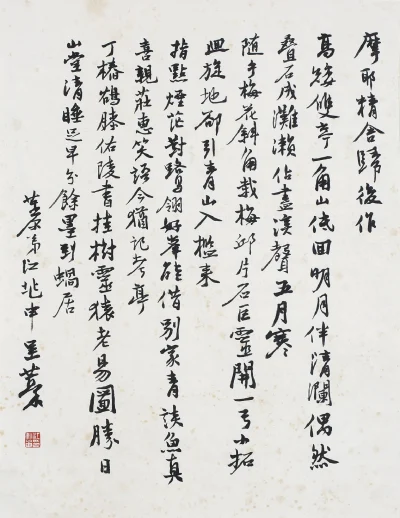 摩耶精舍歸後作
高矮雙亭一角山低回明月伴清瀾偶然
疊石成灘瀨佔盡溪聲五月寒
隨手梅花斜角栽梅邱片石巨靈開一弓小拓
迴旋地卻引青山入檻來
指點煙茫對鷺翎好峯能借別家青談魚真
喜親莊惠笑語今猶記考亭
丁椿鶴膝佑陵書挂樹靈猿老易圖勝日
山堂清睡足早分餘墨到蝸居
江兆申呈藁